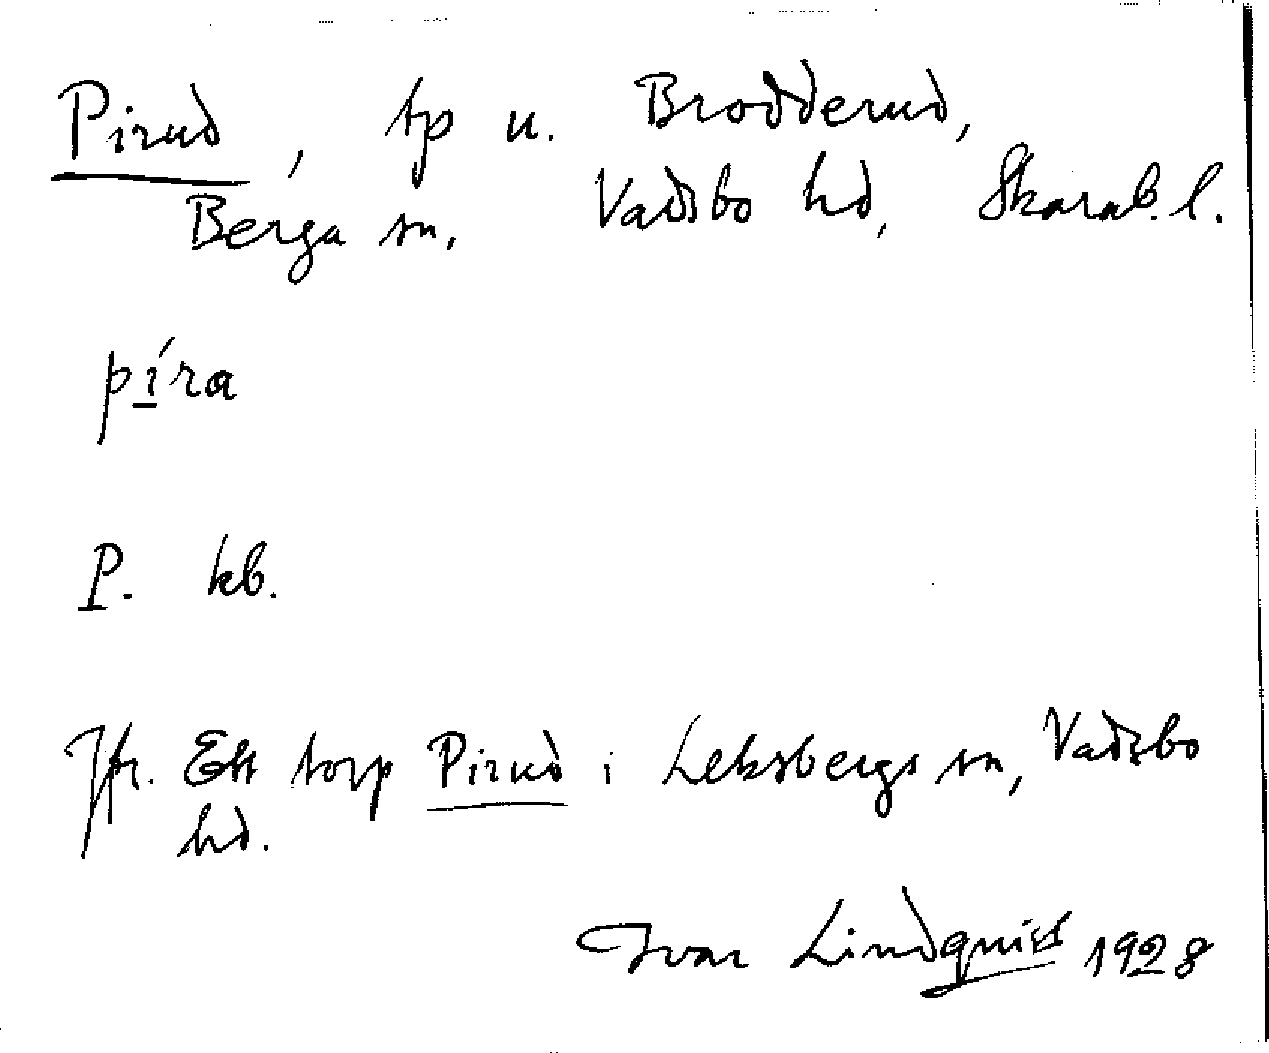 Pirud, tp u. Brodderud,
Berga sn, Vadsbo hd, Skarab. l.
pí̱ra
P. kb.
Jfr. Ett torp Pirud i Leksbergs sn, Vadsbo
hd.
Ivar Lindquist 1928